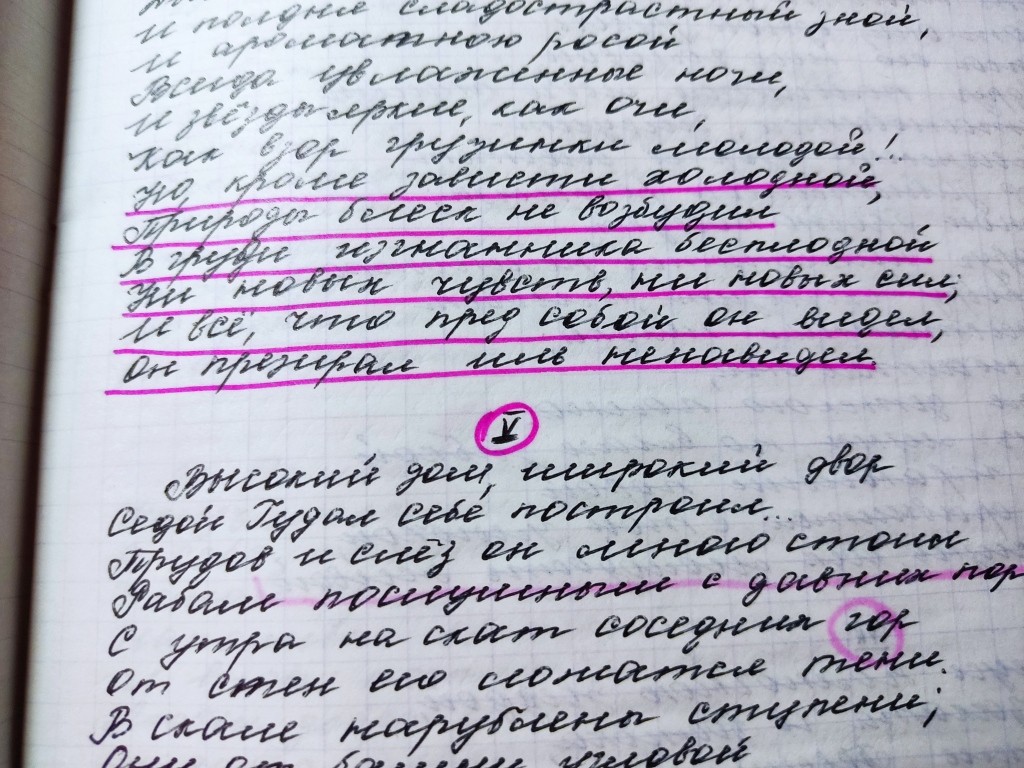 И полдня сладострастный зной,
И ароматною росой
Всегда увлажённые ночи,
И звёзды яркие, как очи,
Как взор грузинки молодой!..
Но, кроме зависти холодной,
Природы блеск не возбудил
В груди изгнанника бесплодной
Ни новых чувств, ни новых сил;
И всё, что пред собой он видел,
Он презирал иль ненавидел.
V
Высокий дом, широкий двор
Седой Гудал себе построил...
Трудов и слёз он много стоил
Рабам послушным с давних пор
С утра на скат соседних гор
От стен его ложатся тени.
В скале нарублены ступени;
Они от башни угловой